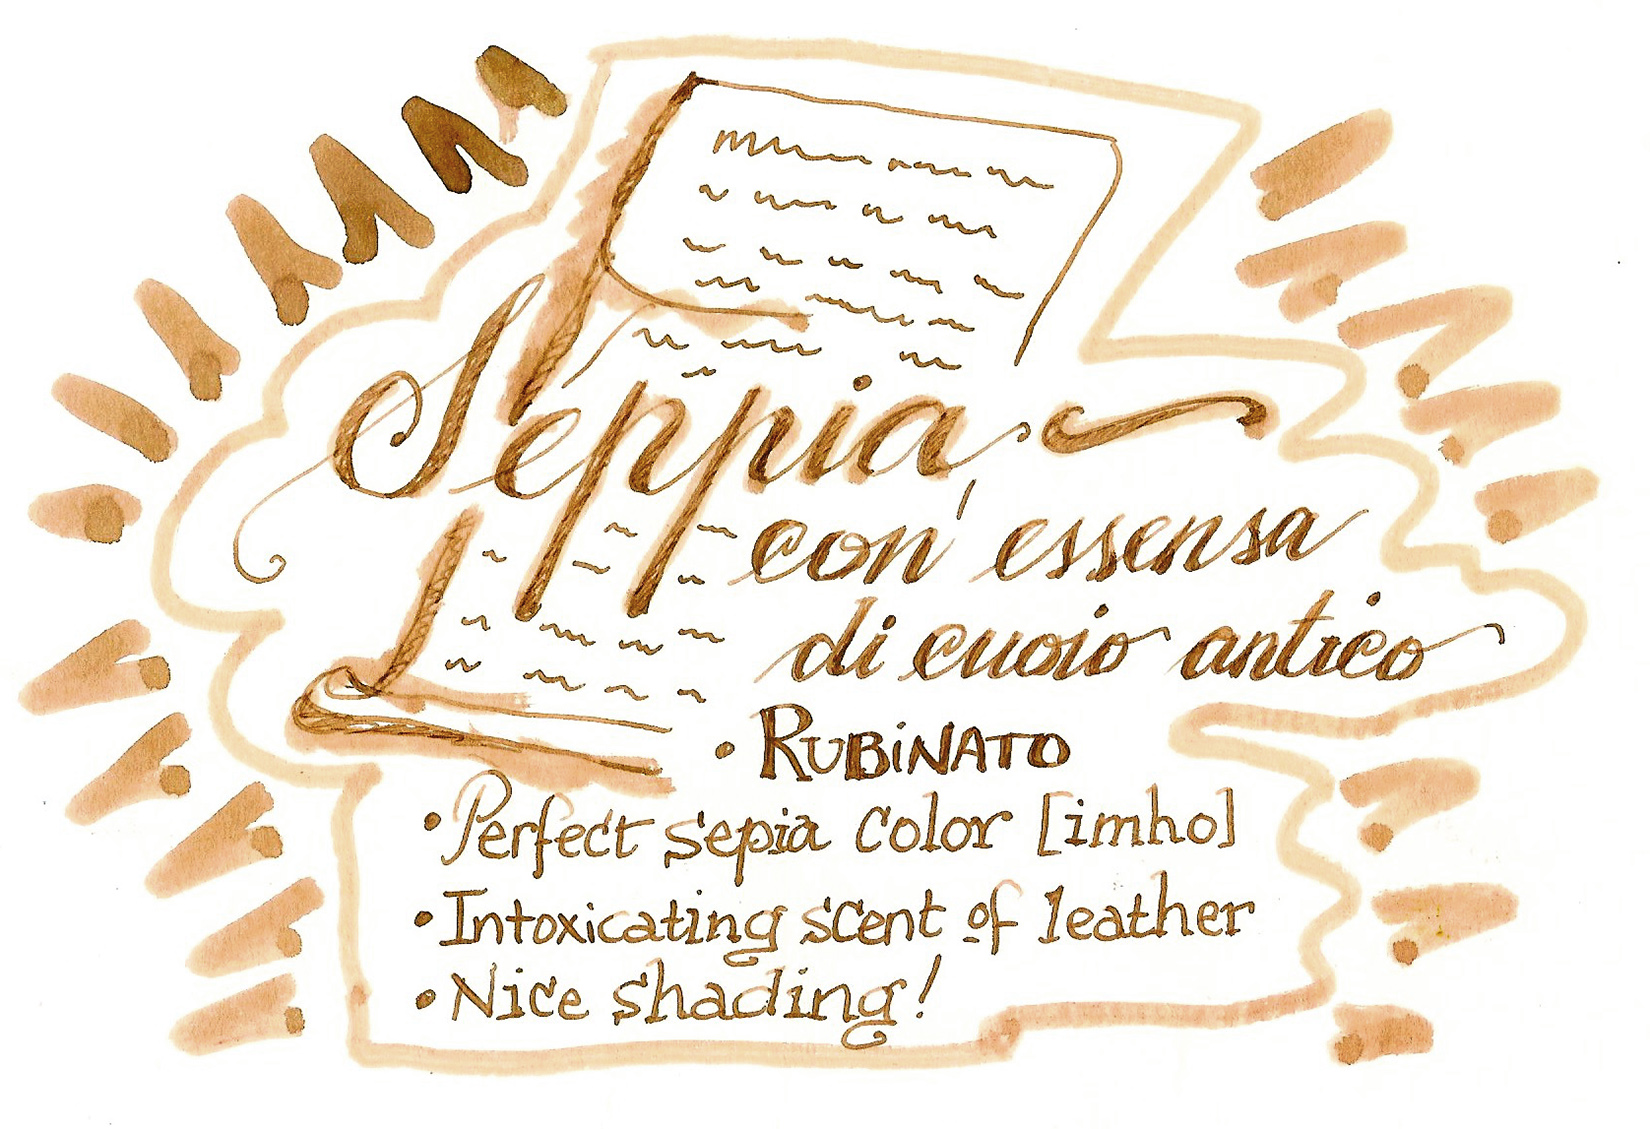 Seppia
con essensa
di cuoio antico
• RUBiNATO
• Perfect sepia color [imho]
• Intoxicating scent of leather
• Nice shading!